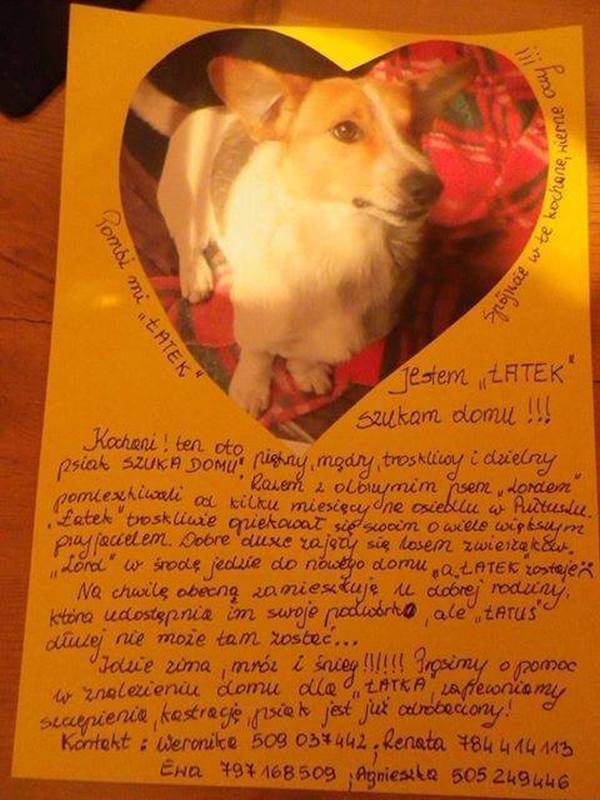 Spójrzcie w te kochane, wierne oczy!!!
Pomóż mi „ŁATEK"
Jestem „ŁATEK"
szukam domu !!!
Kochani! ten oto piękny, mądry, troskliwy i dzielny
psiak SZUKA DOMU". Razem z olbrzymim psem „Lordem"
pomieszkiwali od kilku miesięcy na osiedlu w Pułtusku.
„Łatek" troskliwie opiekował się swoim o wiele większym
przyjacielem. Dobre dusze zajęły się losem zwierzaków.
„Lord" w środę jedzie do nowego domu „a ŁATEK zostaje :(
Na chwilę obecną zamieszkują u dobrej rodziny,
która udostępnia im swoje podwórko, ale „ŁATUŚ"
dłużej nie może tam zostać...
Idzie zima, mróz i śnieg!!!!!! Prosimy o pomoc
w znalezieniu domu dla „ŁATKA", zapewniamy
szczepienia, kastrację, psiak jest już odrobaczony!
Kontakt : Weronika 509 037 442 ; Renata 784 414 113
Ewa 797 168 509 ; Agnieszka 505 249 446